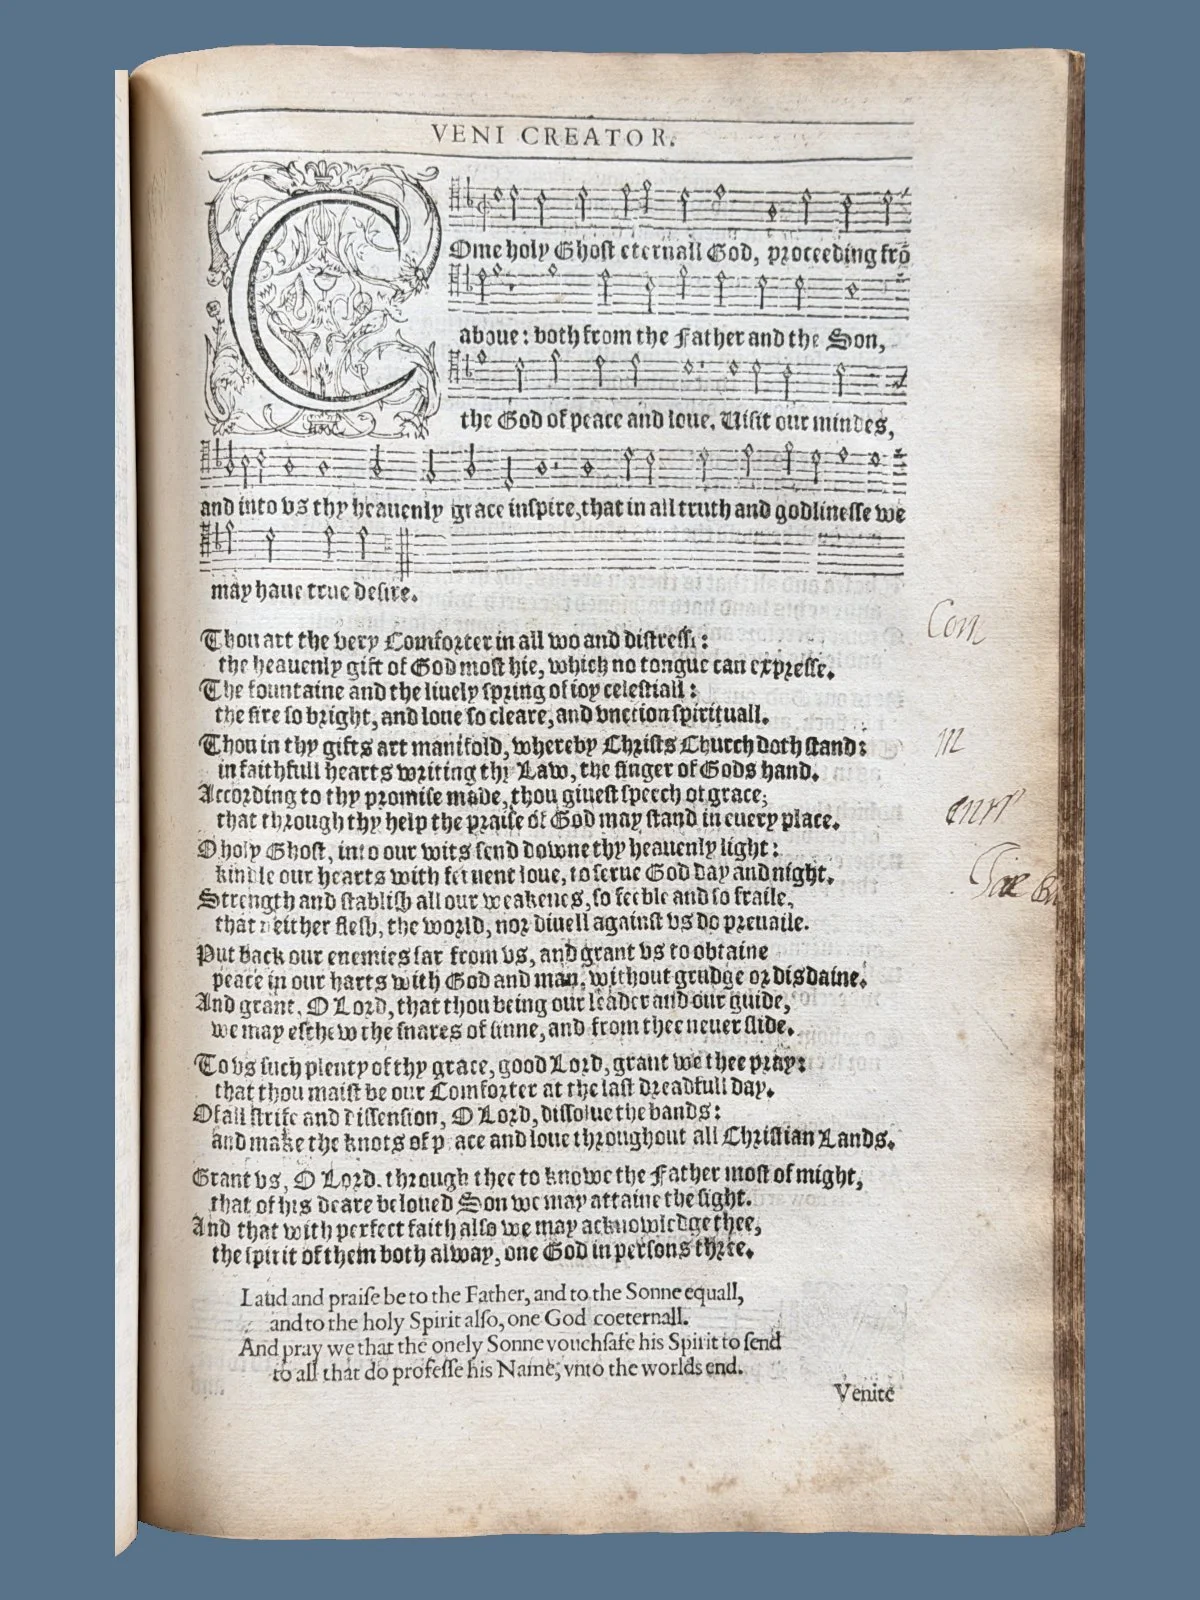 VENI CREATOR.
COme holy Ghost eternall God, proceeding frõ
aboue: both from the Father and the Son,
the God of peace and loue. Uisit our mindes,
and into vs thy heauenly grace inspire, that in all truth and godlinesse we
may haue true desire.
Thou art the very Comforter in all wo and distresse:
the heauenly gift of God most hie, which no tongue can expresse.
The fountaine and the liuely spring of ioy celestiall:
the fire so bright, and loue so cleare, and vnction spirituall.
Thou in thy gifts art manifold, whereby Christs Church doth stand:
in faithfull hearts writing thy Law, the finger of Gods hand.
According to thy promise made, thou giuest speech of grace;
that through thy help the praise of God may stand in euery place.
O holy Ghost, into our wits send downe thy heauenly light:
kindle our hearts with feruent loue, to serue God day and night.
Strength and stablish all our weakenes, so feeble and so fraile,
that neither flesh, the world, nor diuell against vs do preuaile.
Put back our enemies far from vs, and grant vs to obtaine
peace in our harts with God and man, without grudge or disdaine.
And grant, O Lord, that thou being our leader and our guide,
we may eschew the snares of sinne, and from thee neuer slide.
To vs such plenty of thy grace, good Lord, grant we thee pray:
that thou maist be our Comforter at the last dreadfull day.
Of all strife and dissension, O Lord, dissolue the bands:
and make the knots of peace and loue throughout all Christian Lands.
Grant vs, O Lord, through thee to knowe the Father most of might,
that of his deare beloued Son we may attaine the sight.
And that with perfect faith also we may acknowledge thee,
the spirit of them both alway, one God in persons three.
Laud and praise be to the Father, and to the Sonne equall,
and to the holy Spirit also, one God coeternall.
And pray we that the onely Sonne vouchsafe his Spirit to send
to all that do professe his Name, vnto the worlds end.
Venite